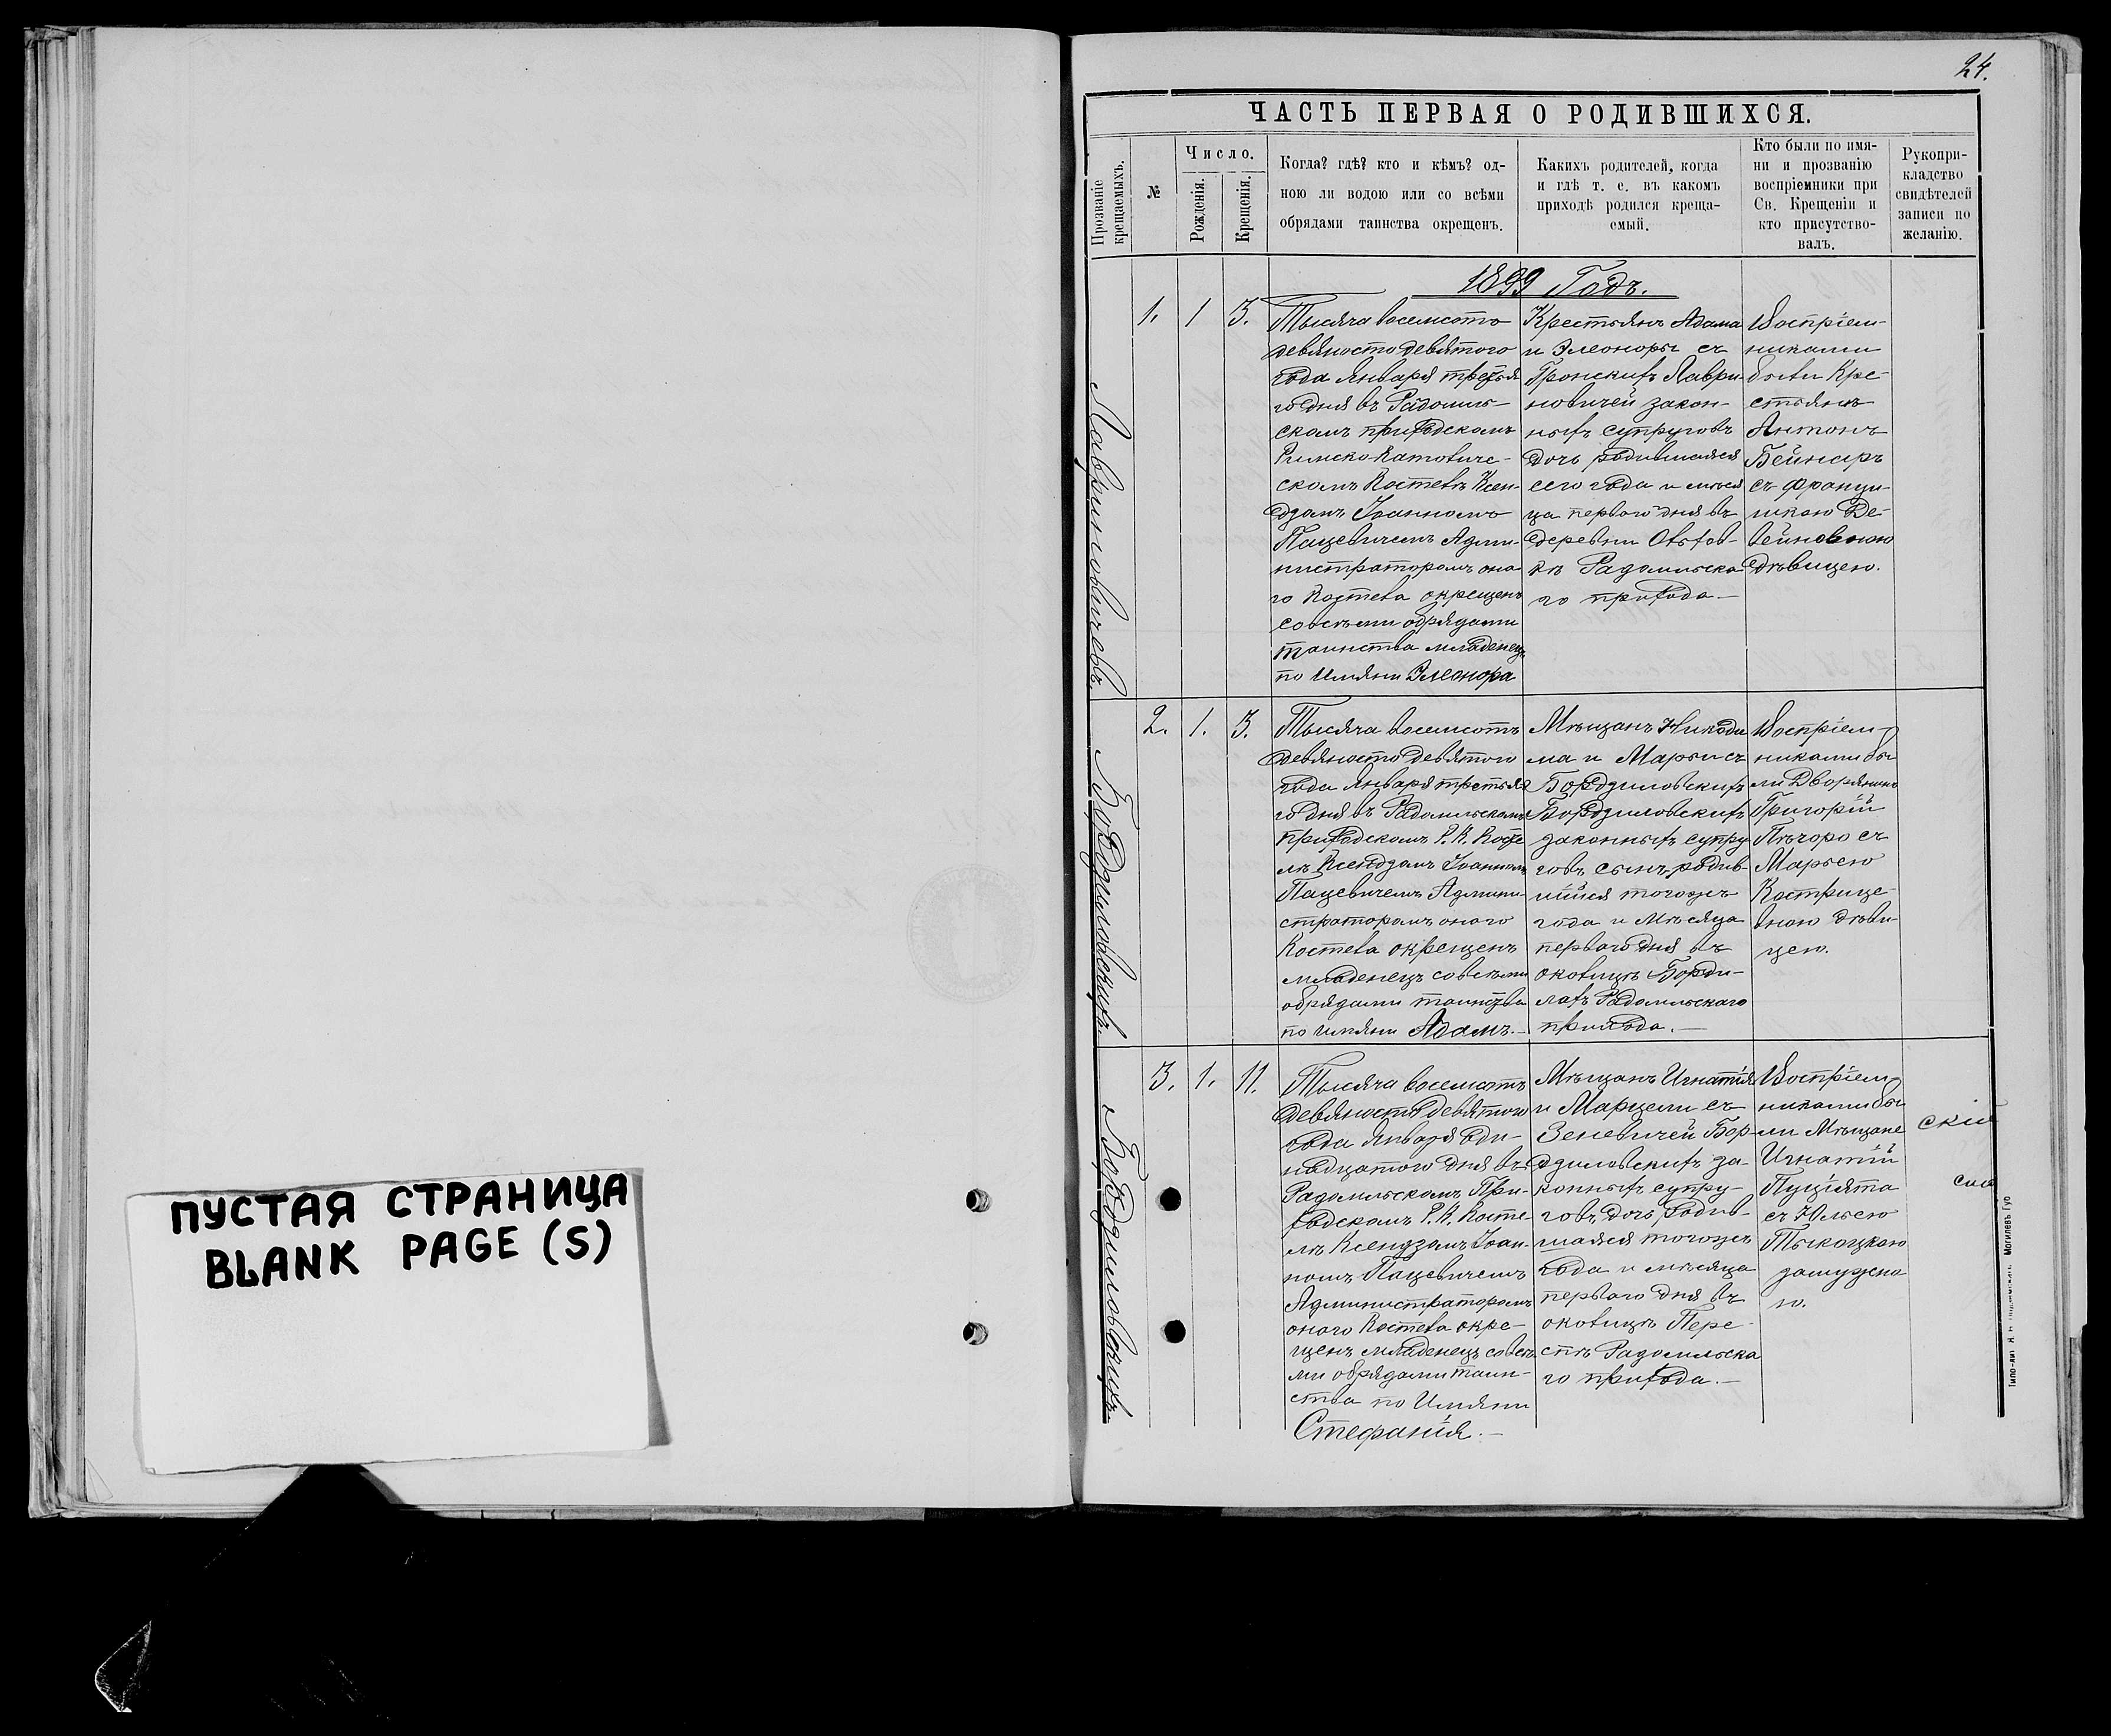 ПУСТАЯ СТРАНИЦА
BLANK PAGE (S)
24.
ЧАСТЬ ПЕРВАЯ О РОДИВШИХСЯ.
Прозваніе
крещаемыхъ.
№
Число.
Рожденія.
Крещенія.
Когда? гдѣ? кто и кѣмъ? од-
ною ли водою или со всѣми
обрядами таинства окрещенъ.
Какихъ родителей, когда
и гдѣ т. е. въ какомъ
приходѣ родился креща-
емый.
Кто были по имя-
ни и прозванію
воспріемники при
Св. Крещеніи и
кто присутство-
валъ.
Рукопри-
кладство
свидѣтелей
записи по
желанію.
1899 Годъ.
1. 1 3.
Тысяча восемсотъ
девяносто девятого
года Января третья
го дня въ Радомль-
скомъ приходскомъ
Римско Католиче-
скомъ Костелѣ Ксен-
дзомъ Іоанномъ
Пацевичемъ Адми-
нистраторомъ она
го Костела окрещенъ
со всѣми обрядами
таинства младенецъ
по Имяни Элеонора
Крестьянъ Адама
и Элеоноры съ
Гронскихъ Лаври-
новичей закон-
ныхъ супруговъ
дочь родившаяся
сего года и мѣся
ца первого дня въ
деревни
Радомльска
го прихода.
Воспріем-
никами
были Кре-
стьянъ
Антонъ
Бейнаръ
съ Франци-
шкою Де-
вейновною
дѣвицею.
2. 1. 3.
Бордзиловскихъ.
Тысяча восемсотъ
девяносто девятого
года Января третья
го дня въ Радомльскомъ
приходскомъ Р. К. Косте
лѣ Ксендзомъ Іоанномъ
Пацевичемъ Админи-
страторомъ оного
Костела окрещенъ
младенецъ со всѣми
обрядами таинства
по Имяни Адамъ.
Мѣщанъ Никоди
ма и Марьи съ
Бордзиловскихъ
Бордзиловскихъ
законныхъ супру
говъ сынъ, родив-
шійся тогожъ
года и Мѣсяца
первого дня въ
околицѣ Борди-
лахъ Радомльскаго
прихода.
Воспріем-
никами бы
ли Дворянинъ
Григорій
съ
Марьею
Кострице-
вною дѣви-
цею.
3. 1. 11.
Бордзиловскихъ.
Тысяча восемсотъ
девяносто девятого
года Января оди-
надцатого дня въ
Радомльскомъ При-
ходскомъ Р. К. Косте-
лѣ Ксендзомъ Іоан-
номъ Пацевичемъ
Администраторомъ
оного Костела окре-
щенъ младенецъ со всѣ
ми обрядами таин-
ства по Имяни
Стефанія.
Мѣщанъ Игнатія
и Марцели съ
Зеневичей Бор-
дзиловскихъ за-
конныхъ супру-
говъ дочь, родив-
шаяся тогожъ
года и мѣсяца
первого дня въ
околицѣ Пере-
спѣ Радомльска
го прихода.
Воспріем-
никами бы
ли Мѣщане
Игнатій
Пуцята
съ Юлею
замужне
ю.